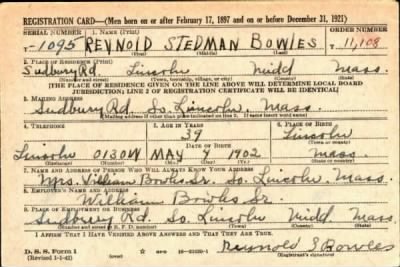 REGISTRATION CARD—(Men born on or after February 17, 1897 and on or before December 31, 1921)
SERIAL NUMBER 1. NAME (Print) ORDER NUMBER
T-1095 REYNOLD STEDMAN BOWLES 11,108
(First) (Middle) (Last)
2. PLACE OF RESIDENCE (Print)
Sudbury Rd. Lincoln Midd Mass.
(Number and street) (Town, township, village, or city) (County) (State)
[THE PLACE OF RESIDENCE GIVEN ON THE LINE ABOVE WILL DETERMINE LOCAL BOARD
JURISDICTION; LINE 2 OF REGISTRATION CERTIFICATE WILL BE IDENTICAL]
3. MAILING ADDRESS
Sudbury Rd. So. Lincoln, Mass.
[Mailing address if other than place indicated on line 2. If same insert word same]
4. TELEPHONE 5. AGE IN YEARS 6. PLACE OF BIRTH
39 Lincoln
DATE OF BIRTH (Town or county)
Lincoln 0130W MAY 4 1902 Mass.
(Exchange) (Number) (Mo.) (Day) (Yr.) (State or country)
7. NAME AND ADDRESS OF PERSON WHO WILL ALWAYS KNOW YOUR ADDRESS
Mrs. William Bowles Sr. So. Lincoln, Mass.
8. EMPLOYER'S NAME AND ADDRESS
William Bowles Sr.
9. PLACE OF EMPLOYMENT OR BUSINESS
Sudbury Rd. So. Lincoln Midd Mass.
(Number and street or R. F. D. number) (Town) (County) (State)
I AFFIRM THAT I HAVE VERIFIED ABOVE ANSWERS AND THAT THEY ARE TRUE.
D. S. S. Form 1
(Revised 1-1-42) (over) Reynold S Bowles
(Registrant's signature)